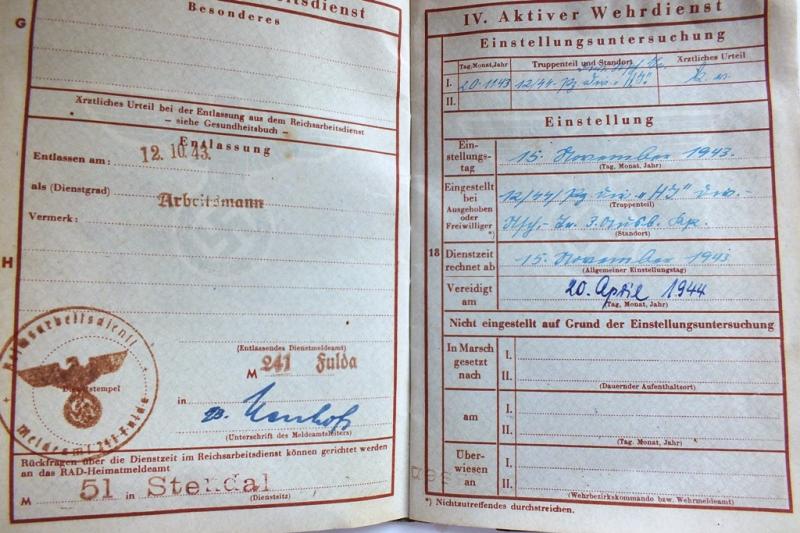 beitsdienst
G
Besonderes
Ärztliches Urteil bei der Entlassung aus dem Reichsarbeitsdienst
– siehe Gesundheitsbuch –
Entlassung
Entlassen am: 12.10.43.
als (Dienstgrad) Arbeitsmann
Vermerk:
H
(Entlassendes Dienstmeldeamt)
M 241 Fulda
Reichsarbeitsdienst
Dienststempel
Meldeamt 241 Fulda
in
(Unterschrift des Meldeamtsleiters)
Rückfragen über die Dienstzeit im Reichsarbeitsdienst können gerichtet werden
an das RAD-Heimatmeldeamt
M 51 in Stendal
(Dienstsitz)
IV. Aktiver Wehrdienst
Einstellungsuntersuchung
Tag, Monat, Jahr Truppenteil und Standort Ärztliches Urteil
I. 20.1143 12/44 Pz Div. "HJ"
II.
Einstellung
Ein-
stellungs-
tag 15. November 1943.
(Tag, Monat, Jahr)
Eingestellt
bei 12/44/Pz Div "HJ" Div.
Ausgehoben (Truppenteil)
oder
Freiwilliger 3. Ausb. Kp.
*) (Standort)
18 Dienstzeit
rechnet ab 15. November 1943
(Allgemeiner Einstellungstag)
Vereidigt
am 20. April 1944
(Tag, Monat, Jahr)
Nicht eingestellt auf Grund der Einstellungsuntersuchung
In Marsch
gesetzt
nach
I.
II.
(Dauernder Aufenthaltsort)
am
I.
II.
(Tag, Monat, Jahr)
Über-
wiesen
an
I.
II.
(Wehrbezirkskommando bzw. Wehrmeldeamt)
*) Nichtzutreffendes durchstreichen.